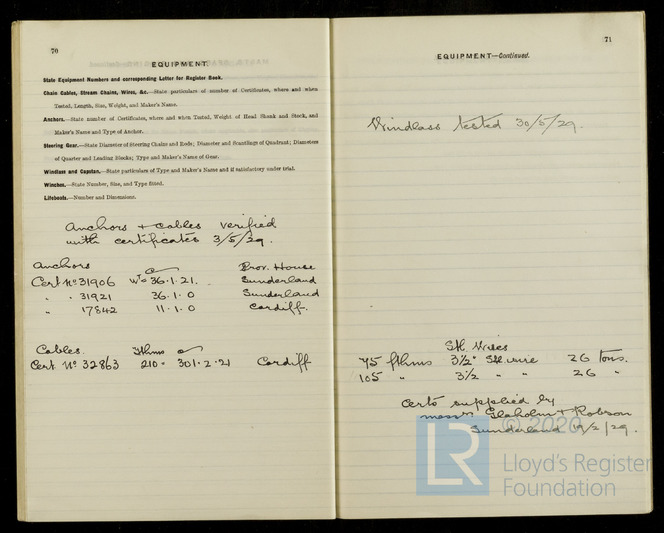 70
EQUIPMENT.
State Equipment Numbers and corresponding Letter for Register Book.
Chain Cables, Stream Chains, Wires, &c.—State particulars of number of Certificates, where and when
Tested, Length, Size, Weight, and Maker's Name.
Anchors.—State number of Certificates, where and when Tested, Weight of Head Shank and Stock, and
Maker's Name and Type of Anchor.
Steering Gear.—State Diameter of Steering Chains and Rods; Diameter and Scantlings of Quadrant; Diameters
of Quarter and Leading Blocks; Type and Maker's Name of Gear.
Windlass and Capstan.—State particulars of Type and Maker's Name and if satisfactory under trial.
Winches.—State Number, Size, and Type fitted.
Lifeboats.—Number and Dimensions.
Anchors + cables verified
with certificates 3/5/29.
Anchors Prov. House
Cert No 31906 Wt 36.1.21. Sunderland
" " 31921 36.1.0 Sunderland
" 17842 11.1.0 Cardiff.
Cables. fthms
Cert. No 32863 210 301.2.21 Cardiff
71
EQUIPMENT—Continued.
Windlass tested 30/5/29.
Stl Wires
75 fthms 3½" Stl wire 26 tons.
105 " 3½ " " 26 "
Certs supplied by
Messrs Glaholm + Robson
Sunderland 19/2/29.
© 2020
LR
Lloyd's Register
Foundation